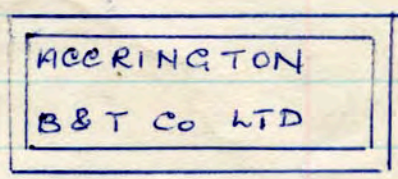 ACCRINGTON
B&T Co LTD